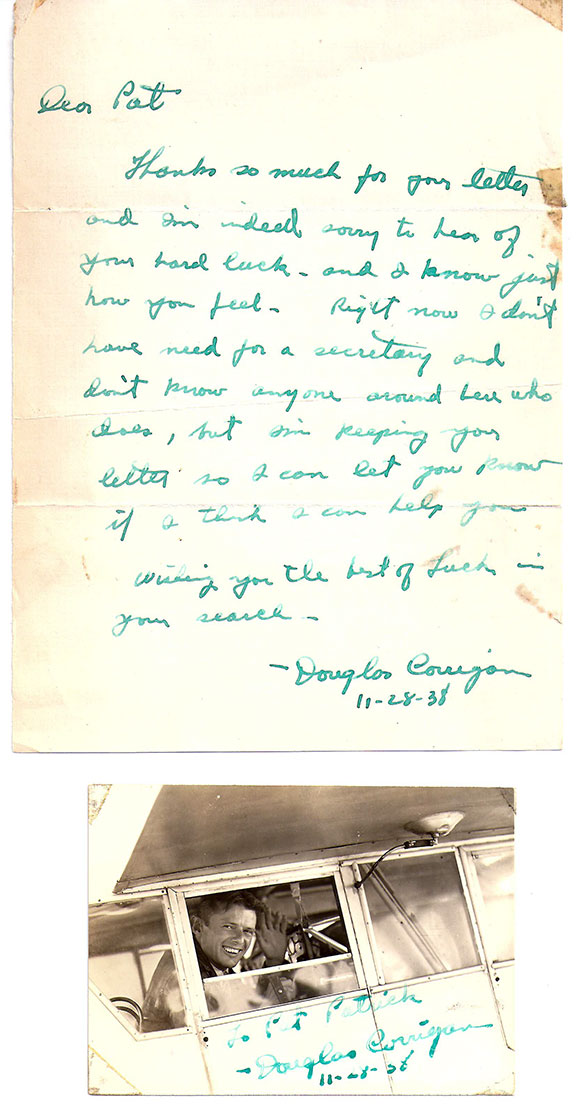 Dear Pat
Thanks so much for your letter
and I'm indeed sorry to hear of
your hard luck - and I know just
how you feel - Right now I don't
have need for a secretary and
don't know anyone around here who
does, but I'm keeping your
letter so I can let you know
if I think I can help you
Wishing you the best of luck in
your search -
- Douglas Corrigan
11-28-38
To Pat Patrick
- Douglas Corrigan
11-28-38